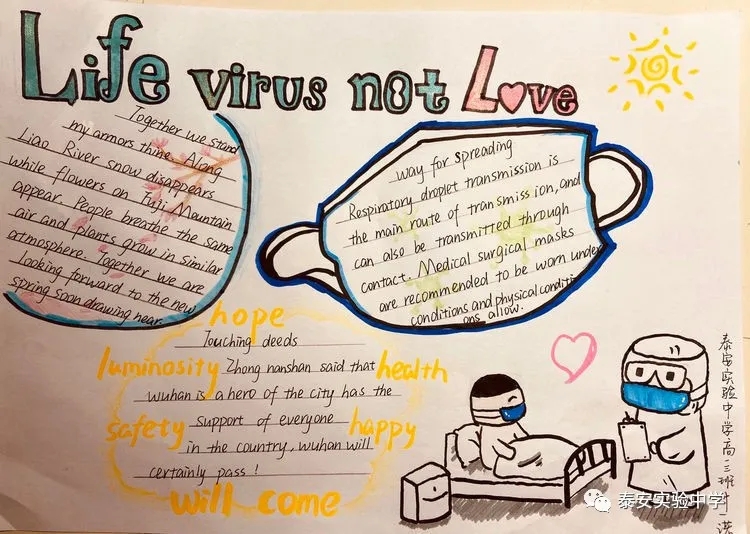 Life virus not Love
Together we stand
my armors thine. Along
Liao River snow disappears
while flowers on Fuji Mountain
appear. People breathe the same
air and plants grow in similar
artmosphere. Together we are
looking forward to the new
spring soon drawing near.
way for spreading
Respiratory droplet transmission is
the main route of transmission, and
can also be transmitted through
contact. Medical surgical masks
are recommended to be worn under
conditions and physical conditi
ons allow.
hope
Touching deeds
luminosity Zhong nanshan said that health
wuhan is a hero of the city has the
safety support of everyone happy
in the country, wuhan will
certainly pass!
will come
泰安实验中学高三班
泰安实验中学